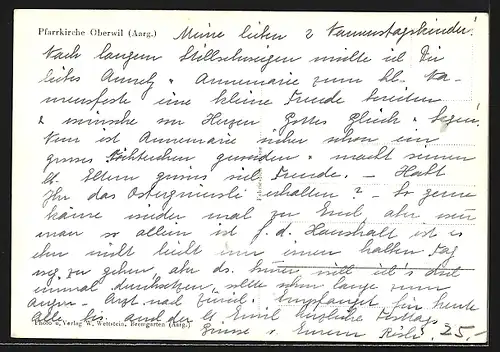 Pfarrkirche Oberwil (Aarg.)
Meine lieben 2 Namenstagskinder!
Nach langem Stillschweigen möchte ich Dir
liebes Annely u. Annemarie zum hl. Na-
mensfeste eine kleine Freude bereiten
u. wünsche von Herzen Gottes Glück u. Segen.
Nun ist Annemarie sicher schon ein
grosses Töchterchen geworden u. macht seinen
lb. Eltern gewiss viel Freude. — Habt
Ihr das Ostergrüessli erhalten? — So gerne
käme wieder mal zu Euch, aber wenn
man so allein ist f. d. Haushalt ist es
eben nicht leicht nur einen halben Tag
weg zu gehen, aber ds. will ich's doch
einmal durchsetzen, sollte schon lange zum
Augen-Arzt nach Zürich. Empfanget für heute
Alle, bes. auch der lb. Emil herzliche Festtags
Grüsse v. Eurem Rösli.
Photo u. Verlag W. Wettstein, Bremgarten (Aarg.)
35.-